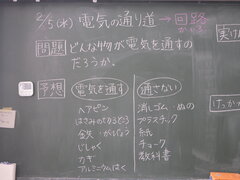 2/5(水) 電気の通り道→回路
かいろ
問題 どんな物が電気を通すのだろうか。
実け
予想 電気を通す 通さない
ヘアピン 消しゴム・ぬの
はさみの切るところ プラスチック
鉄・がびょう 紙
じしゃく チョーク
カギ 教科書
アルミニウムはく
けっか